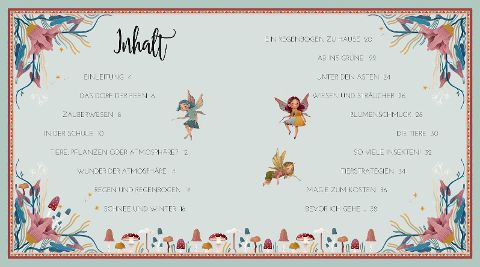 Inhalt
EINLEITUNG 4
DAS DORF DER FEEN 6
ZAUBERWESEN 8
IN DER SCHULE 10
TIERE, PFLANZEN ODER ATMOSPHÄRE? 12
WUNDER DER ATMOSPHÄRE 14
REGEN UND REGENBOGEN 16
SCHNEE UND WINTER 18
EIN REGENBOGEN ZU HAUSE 20
AB INS GRÜNE 22
UNTER DEN ÄSTEN 24
WIESEN UND STRÄUCHER 26
BLUMENSCHMUCK 28
DIE TIERE 30
SO VIELE INSEKTEN! 32
TIERSTRATEGIEN 34
MAGIE ZUM KOSTEN 36
BEVOR ICH GEHE ... 38